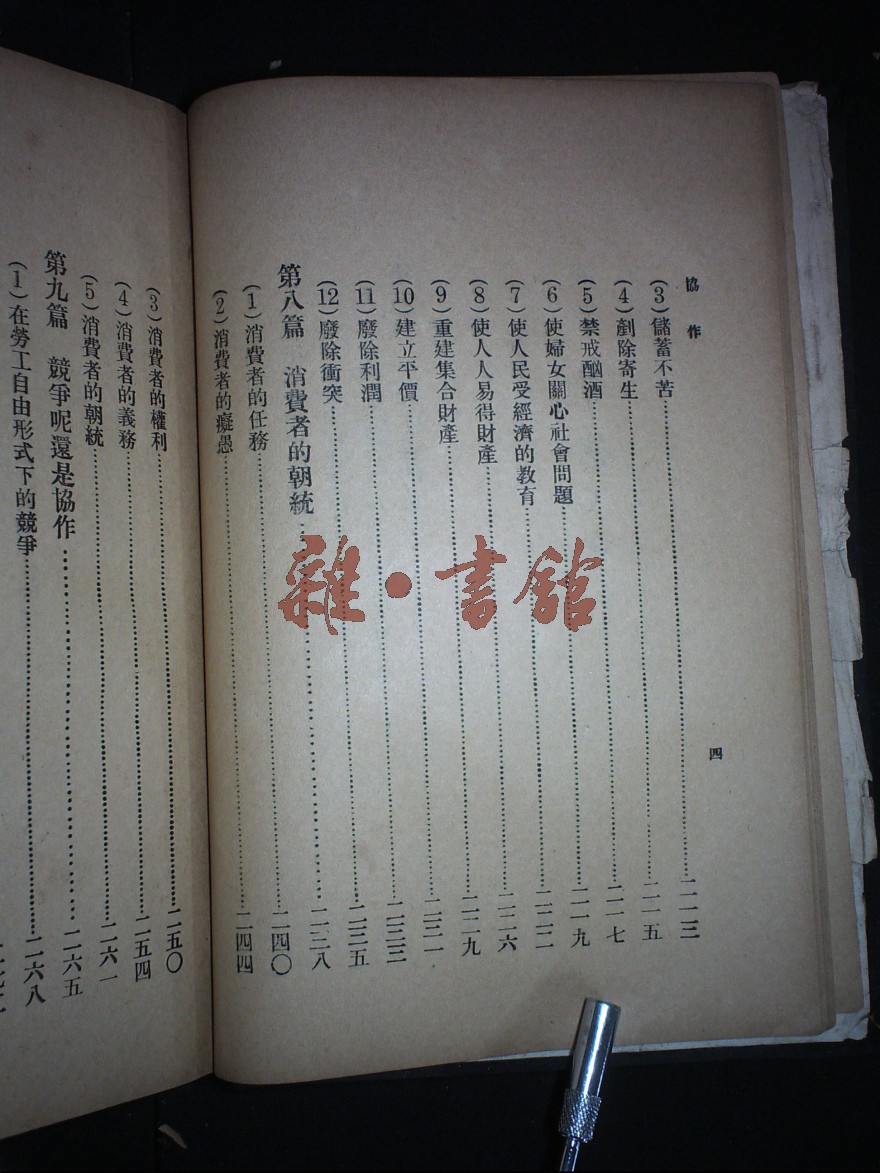 協作
四
(3)儲蓄不苦……二一三
(4)剷除寄生……二一五
(5)禁戒酗酒……二一七
(6)使婦女關心社會問題……二一九
(7)使人民受經濟的教育……二二二
(8)使人人易得財產……二二六
(9)重建集合財產……二二九
(10)建立平價……二三一
(11)廢除利潤……二三三
(12)廢除衝突……二三五
第八篇 消費者的朝統……二三八
(1)消費者的任務……二四〇
(2)消費者的癡愚……二四四
(3)消費者的權利……二五〇
(4)消費者的義務……二五四
(5)消費者的朝統……二六一
第九篇 競爭呢還是協作……二六五
(1)在勞工自由形式下的競爭……二六八
雜·書館